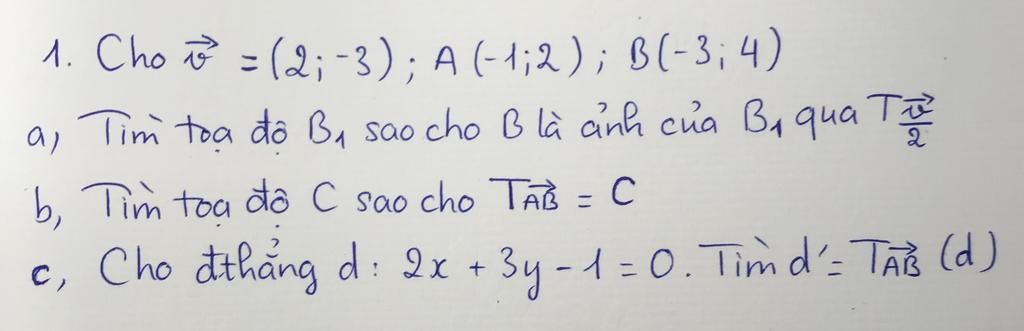 1. Cho \vec{v} = (2; -3); A (-1; 2); B(-3; 4)
a, Tìm toạ độ B₁ sao cho B là ảnh của B₁ qua T_{\frac{\vec{v}}{2}}
b, Tìm toạ độ C sao cho T_{\vec{AB}} = C
c, Cho đthẳng d: 2x + 3y - 1 = 0. Tìm d' = T_{\vec{AB}} (d)